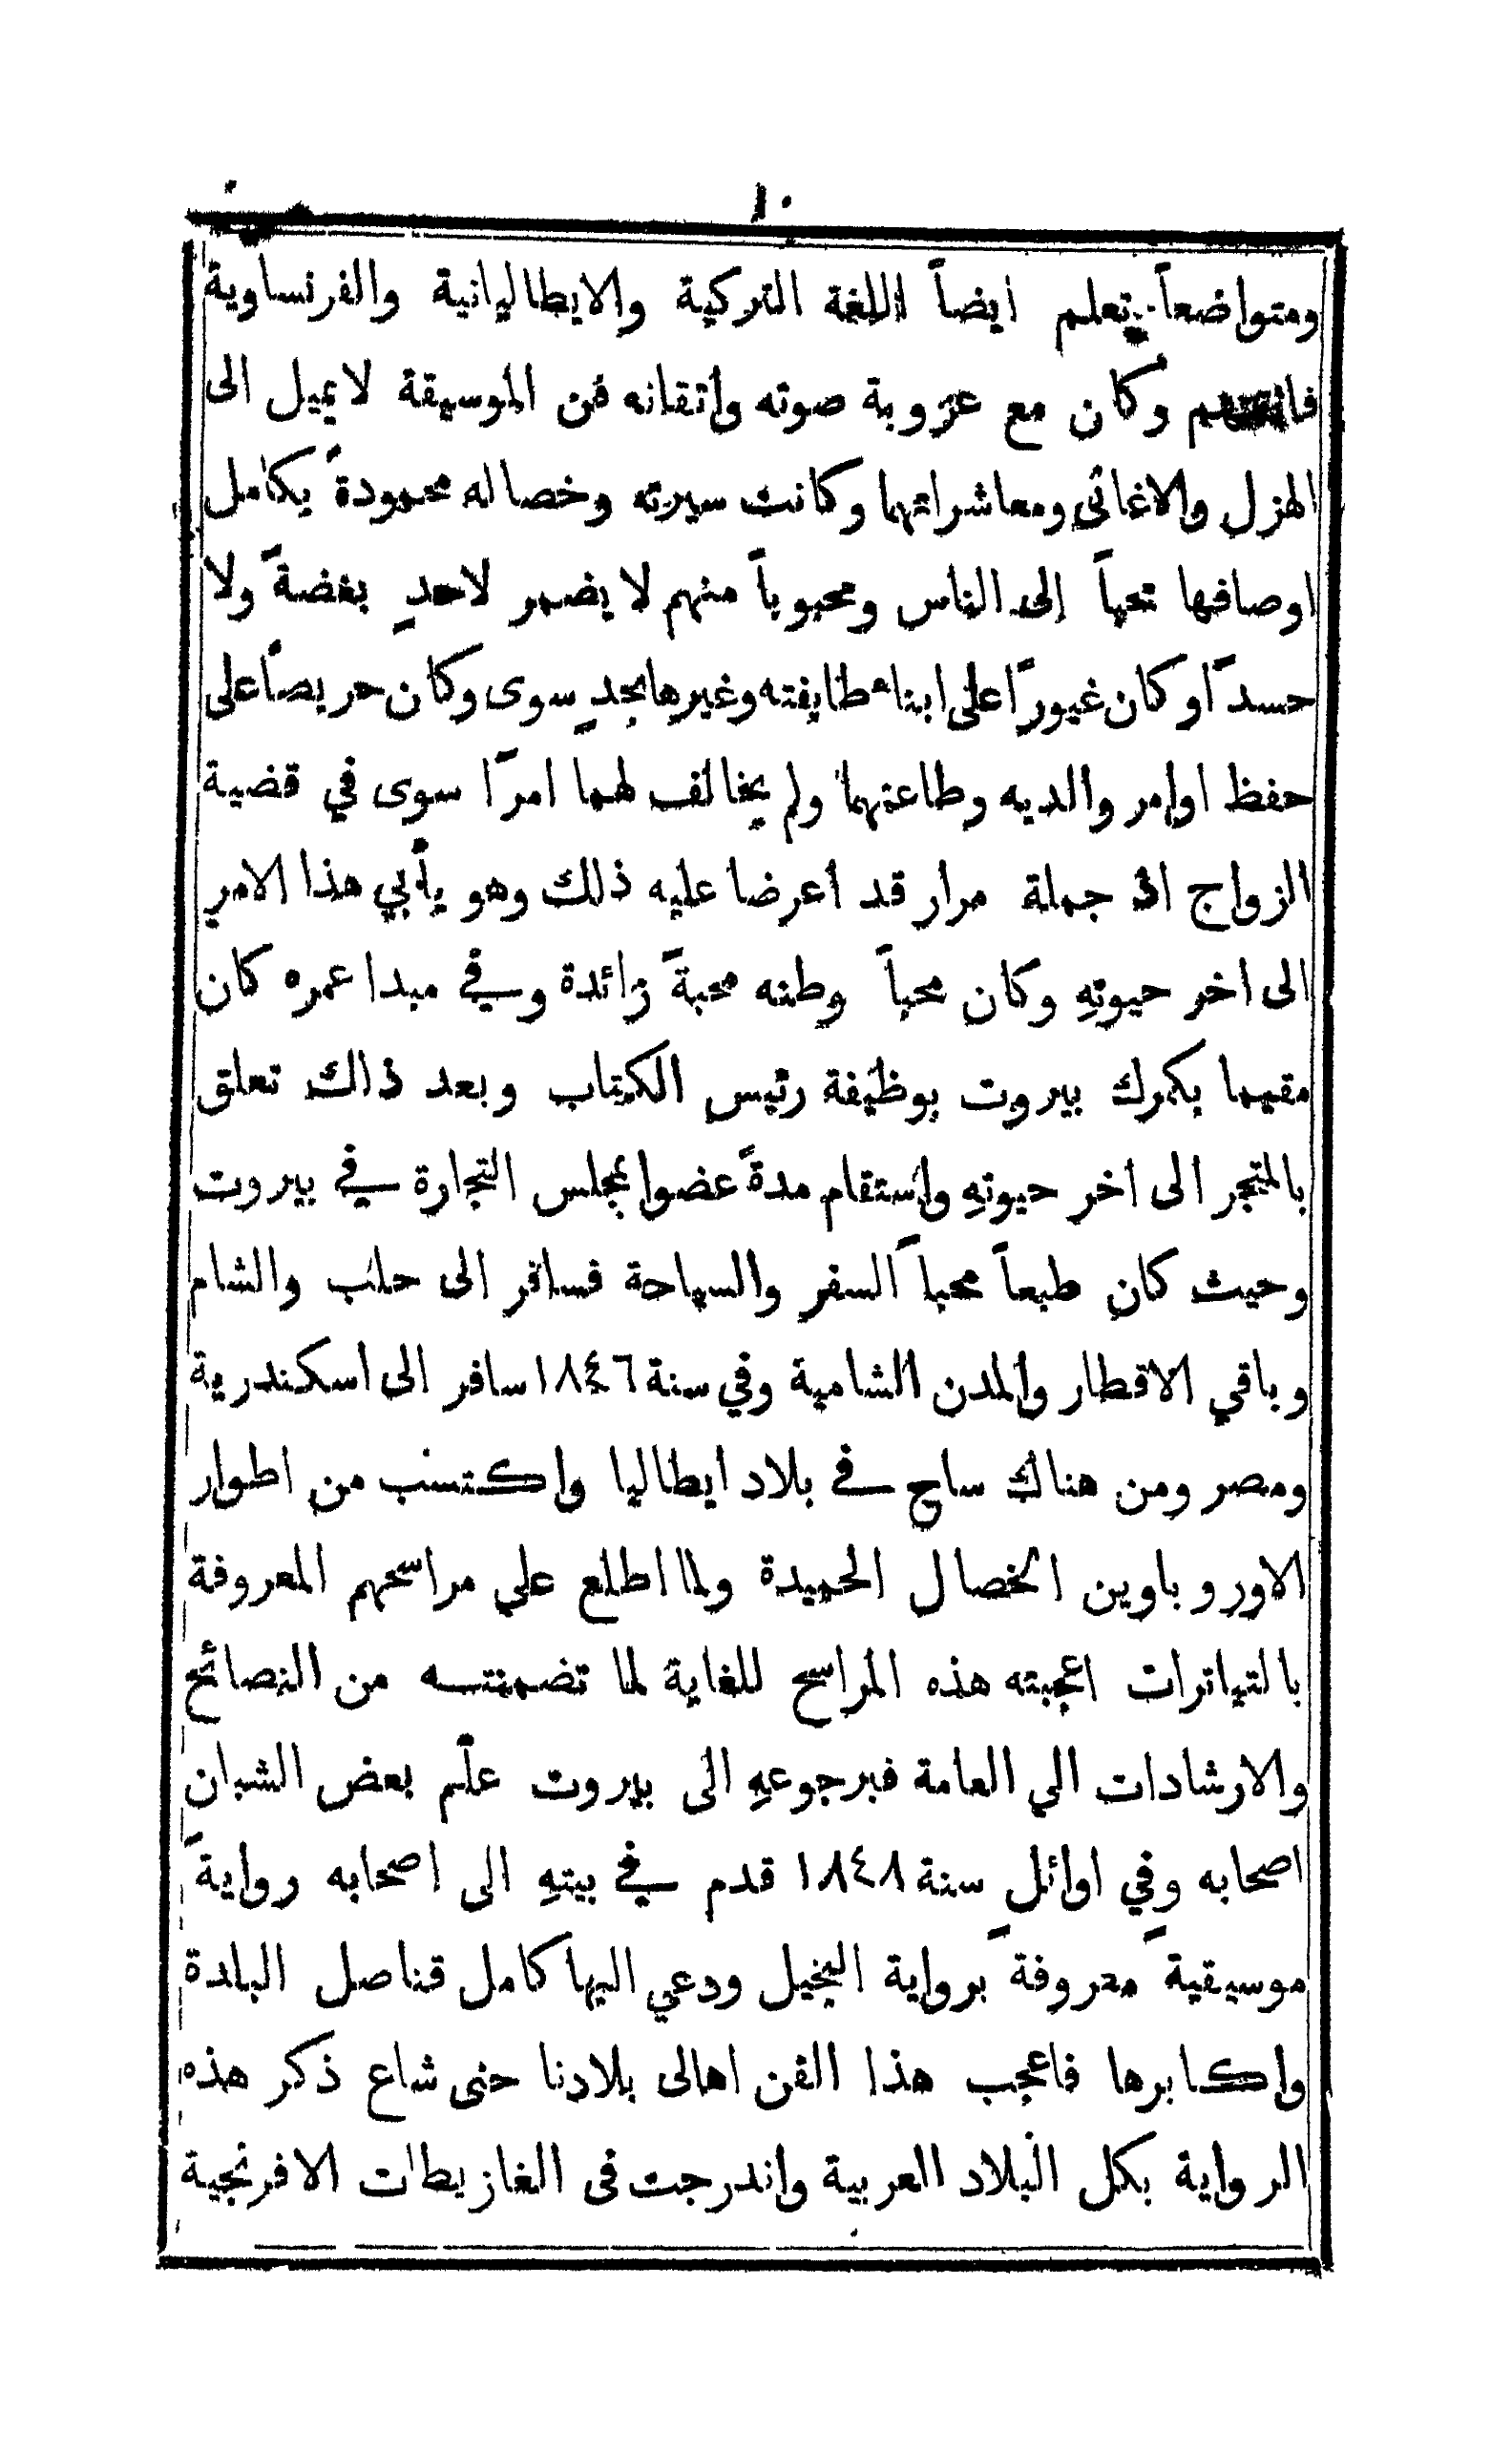 ١٠
ومتواضعاً تعلم ايضاً اللغة التركية والايطاليانية والفرنساوية
وكان مع عزوبة صوته واتقانه فن الموسيقة لا يميل الى
الهزل والاغاني ومعاشراتهما وكانت سيرته وخصاله محمودةً بكامل
اوصافها تحباً الى الناس ومحبوباً منهم لا يضمر لاحدٍ بغضةً ولا
حسدًا وكان غيورًا على ابناء طايفته وغيرها بجدٍ سوى وكان حريصاً على
حفظ اوامر والديه وطاعتهما ولم يخالف لهما امرًا سوى في قضية
الزواج اذ جملة مرار قد اعرضا عليه ذلك وهو يأبي هذا الامر
الى اخر حيوتهِ وكان محباً وطنه محبةً زائدة وفي مبدا عمره كان
مقيما بكمرك بيروت بوظيفة رئيس الكتاب وبعد ذالك تعلق
بالمتجر الى اخر حيوتهِ واستقام مدةً عضوا بمجلس التجارة في بيروت
وحيث كان طبعاً محباً السفر والسياحة فسافر الى حلب والشام
وباقي الاقطار والمدن الشامية وفي سنة ١٨٤٦ سافر الى اسكندرية
ومصر ومن هناك ساح في بلاد ايطاليا واكتسب من اطوار
الاوروباوين الخصال الحميدة ولما اطلع علي مراسحهم المعروفة
بالتياترات اعجبته هذه المراسح للغاية لما تضمنته من النصائح
والارشادات الي العامة فبرجوعهِ الى بيروت علّم بعض الشبان
اصحابه وفي اوائل سنة ١٨٤٨ قدم في بيتهِ الى اصحابه روايةً
موسيقيةً معروفةً برواية البخيل ودعي اليها كامل قناصل البلدة
واكابرها فاعجب هذا الفن اهالى بلادنا حتى شاع ذكر هذه
الرواية بكل البلاد العربية واندرجت في الغازيطات الافرنجية